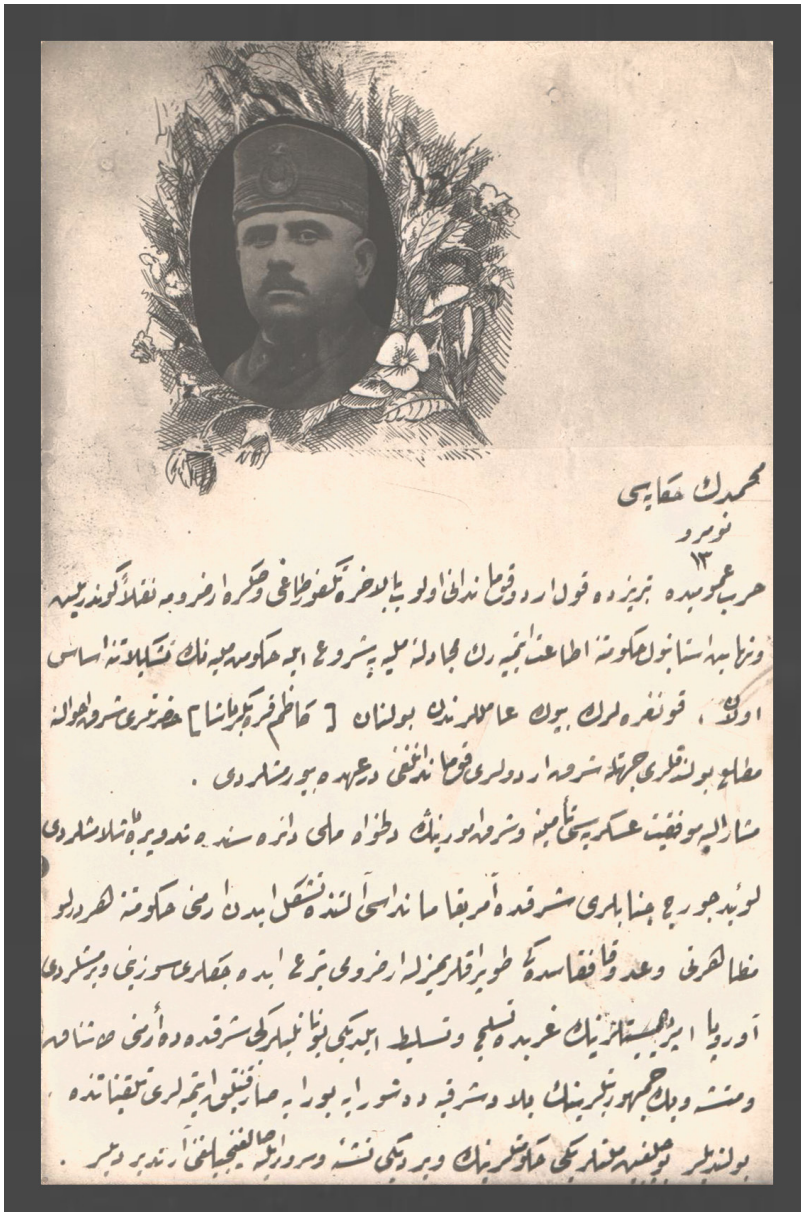 محمدك حكايه‌سى
نومرو
١٣
حرب عموميده تبريزده قول اردو قوماندانى اولوب بالاخره تكفور طاغى وصكره ارضرومه نقلاً كوندريلن
ونهايت استانبول حكومتنه اطاعت ايتميه‌رك مجادلهٔ مليه‌يه شروع ايله حكومت مليه‌نك تشكيلاتنه اساس
اولان ، قونغره‌لرك بيوك عامللرندن بولنان [ كاظم قره بكر پاشا ] حضرتلرى شرق احوالنه
مطلع بولندقلرى جهتله شرق اردولرى قوماندانلغنى درعهده بيورمشلردى .
مشار اليه موفقيت عسكريه‌سنى تأمينه وشرق امورينك دلخواه ملى دائره‌سنده تدويرينه باشلامشلردى
لوئيد جورج جنابلرى شرقده آمريقا مانداسى آلتنده تشكل ايدن ارمنى حكومتنه هر درلو
مظاهرتى وعد وقافقاسده‌كى طوپراقلريمزله ارضرومى تبرع ايده‌جكلرى سوزينى ويرمشلردى
آوروپا امپرياليستلرينك غربده تسليح وتسليط ايلديكى يونانليلر كبى شرقده ده أرمنى طاشناق
ومنشه‌ويك جمهوريتلرينك بلاد شرقيه ده شورايه بورايه صارقنتيلق ايتمه‌لرى تلقيناتنده
بولنديلر بو چيلغين ملتلر كى حكومتلرينك ويرديكى نشئه وسرور ايله چالغيجيلغنى آرتديرديلر .